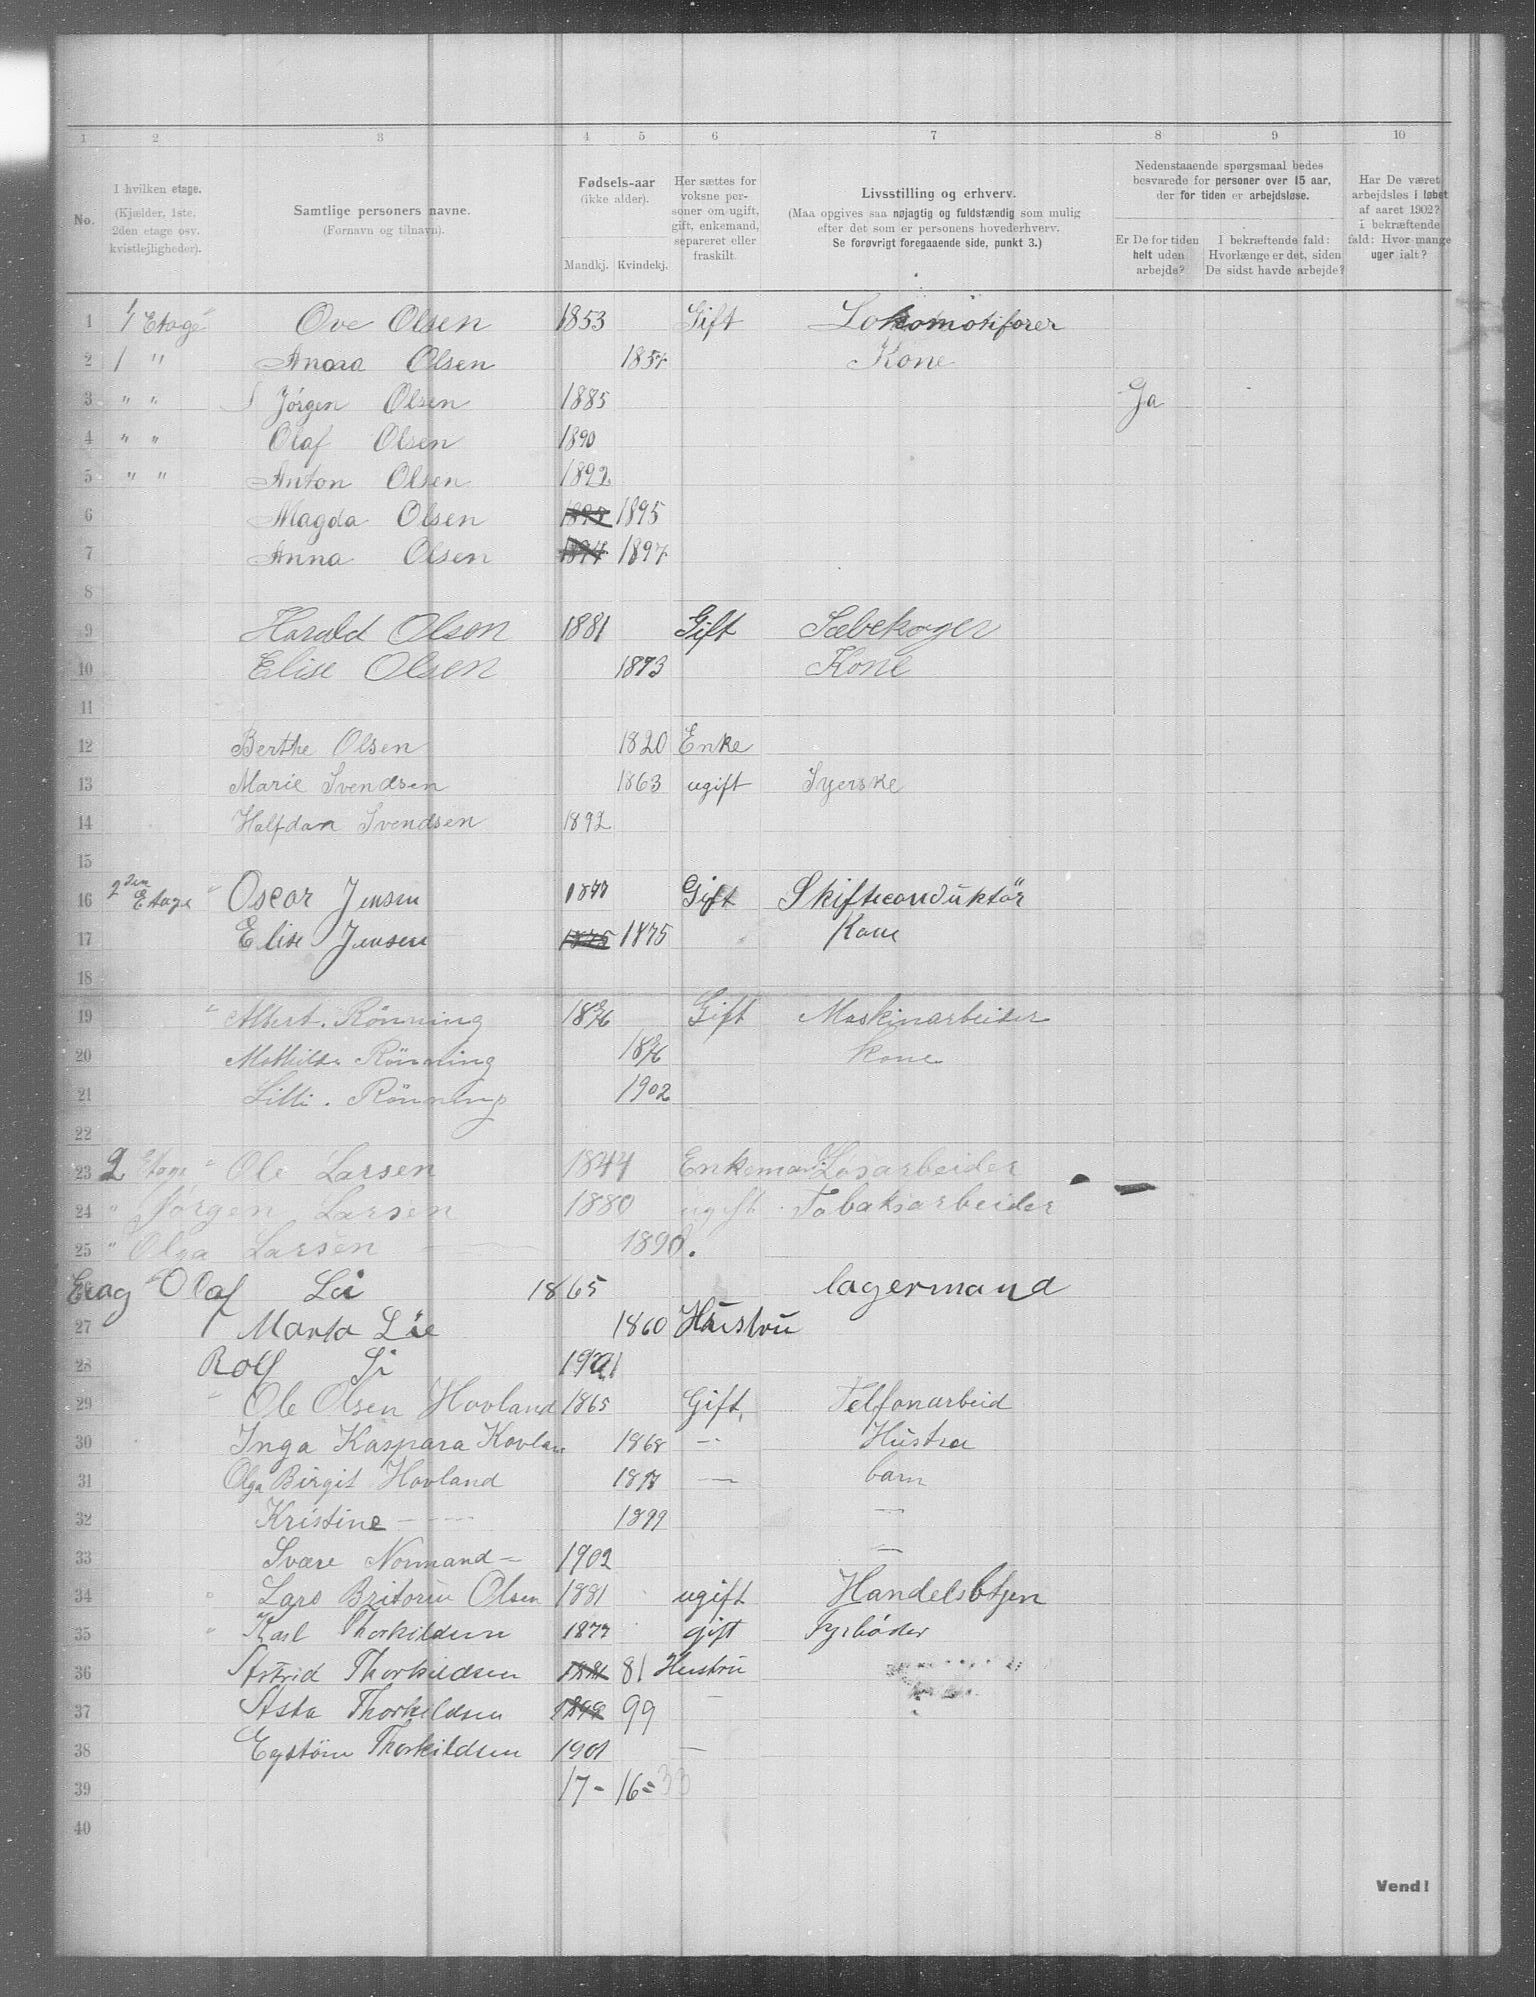 1 2 3 4 5 6 7 8 9 10
No.
I hvilken etage.
(Kjælder, 1ste,
2den etage osv.
kvistleiligheder).
Samtlige personers navne.
(Fornavn og tilnavn).
Fødsels-aar
(ikke alder).
Mandkj. Kvindekj.
Her sættes for
voksne per-
soner om ugift,
gift, enkemand,
separeret eller
fraskilt.
Livsstilling og erhverv.
(Maa opgives saa nøjagtig og fuldstændig som mulig
efter det som er personens hovederhverv.
Se forøvrigt foregaaende side, punkt 3.)
Nedenstaaende spørgsmaal bedes
besvarede for personer over 15 aar,
der for tiden er arbejdsløse.
Er De for tiden
helt uden
arbejde?
I bekræftende fald:
Hvorlænge er det, siden
De sidst havde arbejde?
Har De været
arbejdsløs i løbet
af aaret 1902?
i bekræftende
fald: Hvor mange
uger ialt?
1 1 Etage Ove Olsen 1853 Gift Lokomotifører
2 1 " Anna Olsen 1857 Kone
3 " " Jørgen Olsen 1885 Ja
4 " " Olaf Olsen 1890
5 " " Anton Olsen 1892
6 Magda Olsen 1895 1895
7 Anna Olsen 1897 1897
8
9 Harald Olson 1881 Gift Sæbekoger
10 Elise Olsen 1873 Kone
11
12 Berthe Olsen 1820 Enke
13 Marie Svendsen 1863 ugift Syerske
14 Halfdan Svendsen 1892
15
16 2den Etage " Oscar Jensen 1877 Gift Skifteconduktör
17 Elise Jensen 1875 1875 Kone
18
19 " Albert. Rönning 1876 Gift Maskinarbeider
20 Mathilde Rönning 1876 Kone
21 Lilli. Rönning 1902
22
23 2 Etage " Ole Larsen 1844 Enkeman Løsarbeider
24 " Jørgen Larsen 1880 ugift Tobaksarbeider
25 " Olga Larsen 1890.
Etag " Olaf Li 1865 lagermand
27 Marta Lie 1860 Hustru
28 Rolf Li 1901
29 " Ole Olsen Hovland 1865 Gift, Telfonarbeid
30 Inga Kaspara Hovlan 1868 - Hustru
31 Olga Birgit Hovland 1897 — barn
32 Kristine — 1899 —
33 Svære Normand — 1902 —
34 " Lars Olsen 1881 ugift Handelsbtjen
35 " Karl Thorkildsen 1877 gift Fyrbøder
36 Astrid Thorkildsen 1881 81 Hustru
37 Asta Thorkildsen 1899 99 —
38 Thorkildsen 1901 —
39 17 - 16 = 33
40
Vend!